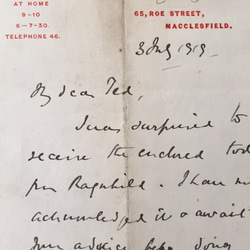 AT HOME
9-10
6-7.30.
TELEPHONE 46.
65, ROE STREET,
MACCLESFIELD.
3 July 1919
My dear Ted,
I was surprised to
receive the enclosed
from Ragnhild. I have
acknowledged it & await
your advice before doing